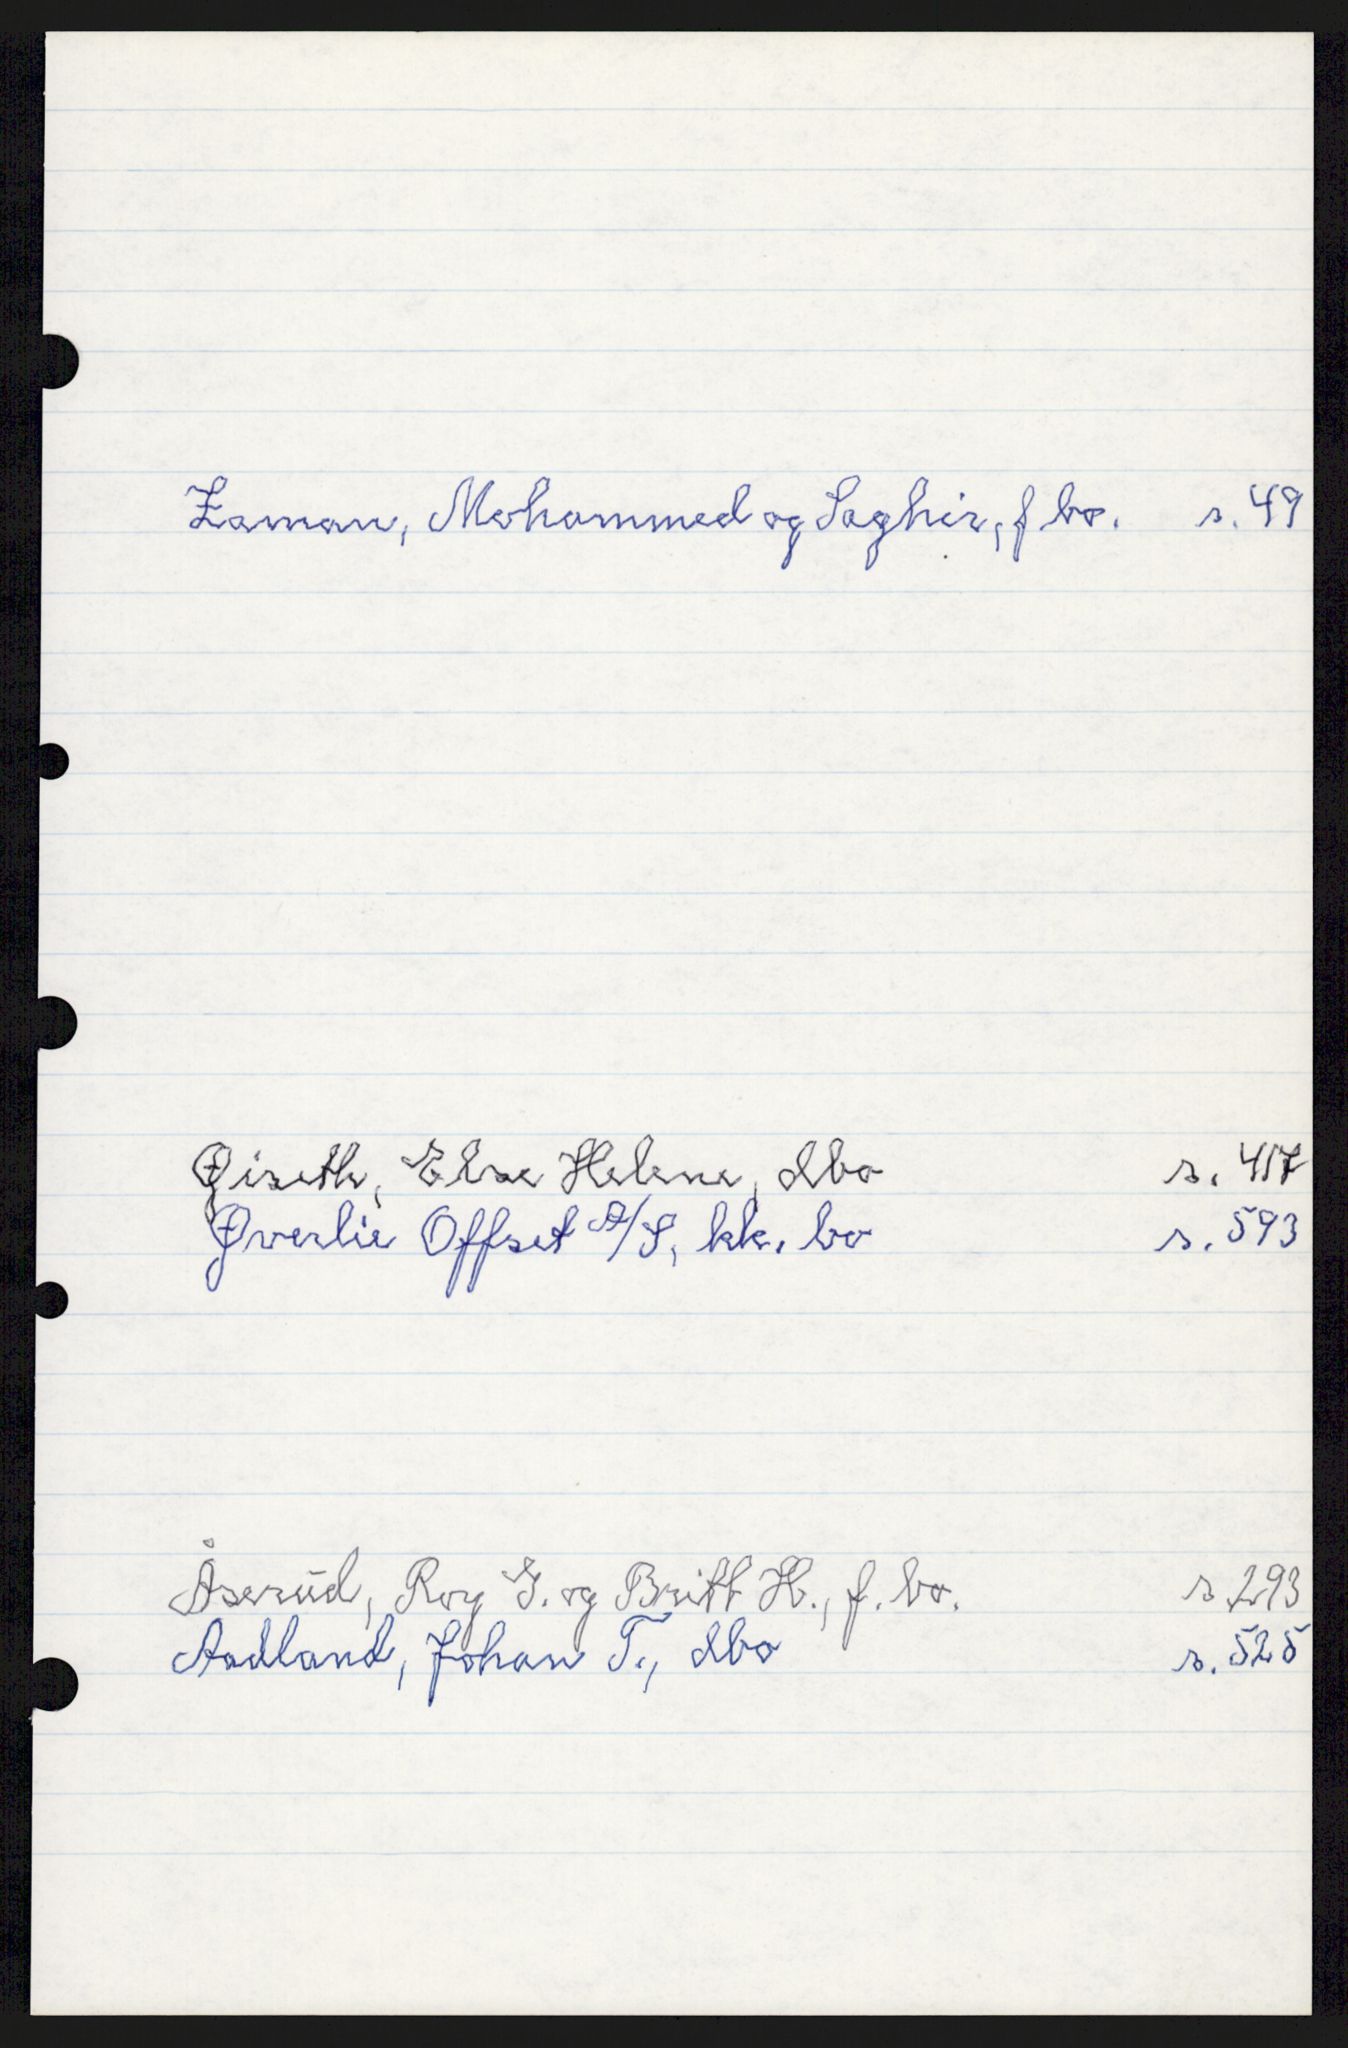 Zaman, Mohammed og Saghir, f bo. s. 49
Øiseth, Else Helene, dbo s. 417
Øverlie Offset A/S, kk. bo s. 593
Åserud, Roy G. og Britt H., f. bo. s. 293
Aadland, Johan T., dbo s. 525